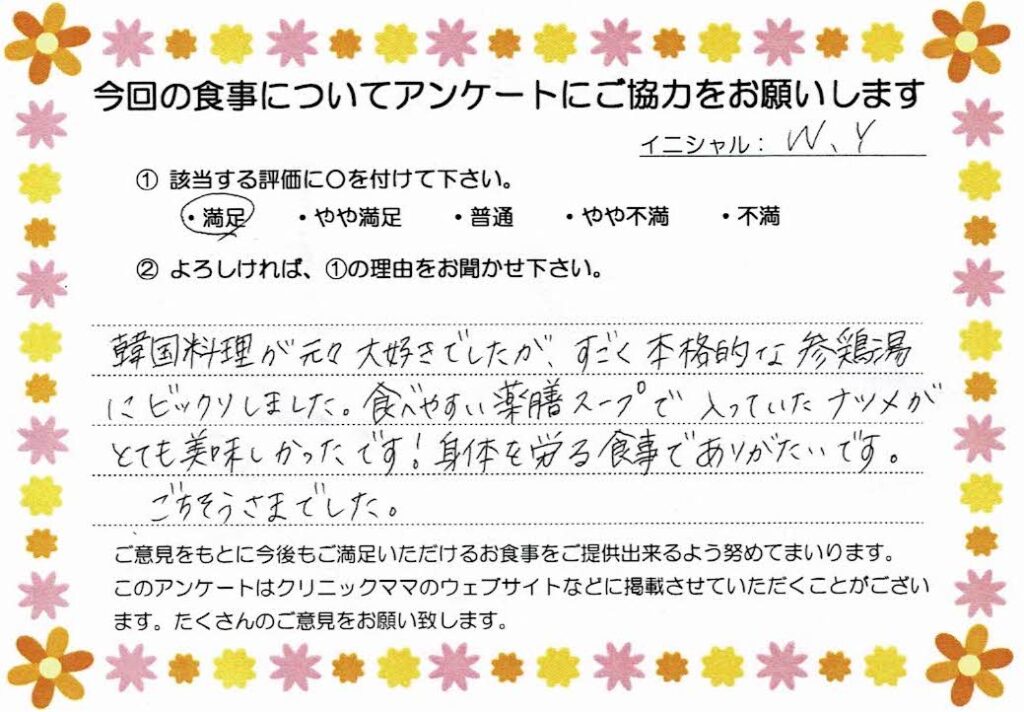 今回の食事についてアンケートにご協力をお願いします
イニシャル： W、Y
① 該当する評価に〇を付けて下さい。
・満足 ・やや満足 ・普通 ・やや不満 ・不満
② よろしければ、①の理由をお聞かせ下さい。
韓国料理が元々大好きでしたが、すごく本格的な参鶏湯
にビックリしました。食べやすい薬膳スープで入っていたナツメが
とても美味しかったです！身体を労る食事でありがたいです。
ごちそうさまでした。
ご意見をもとに今後もご満足いただけるお食事をご提供出来るよう努めてまいります。
このアンケートはクリニックママのウェブサイトなどに掲載させていただくことがござい
ます。たくさんのご意見をお願い致します。